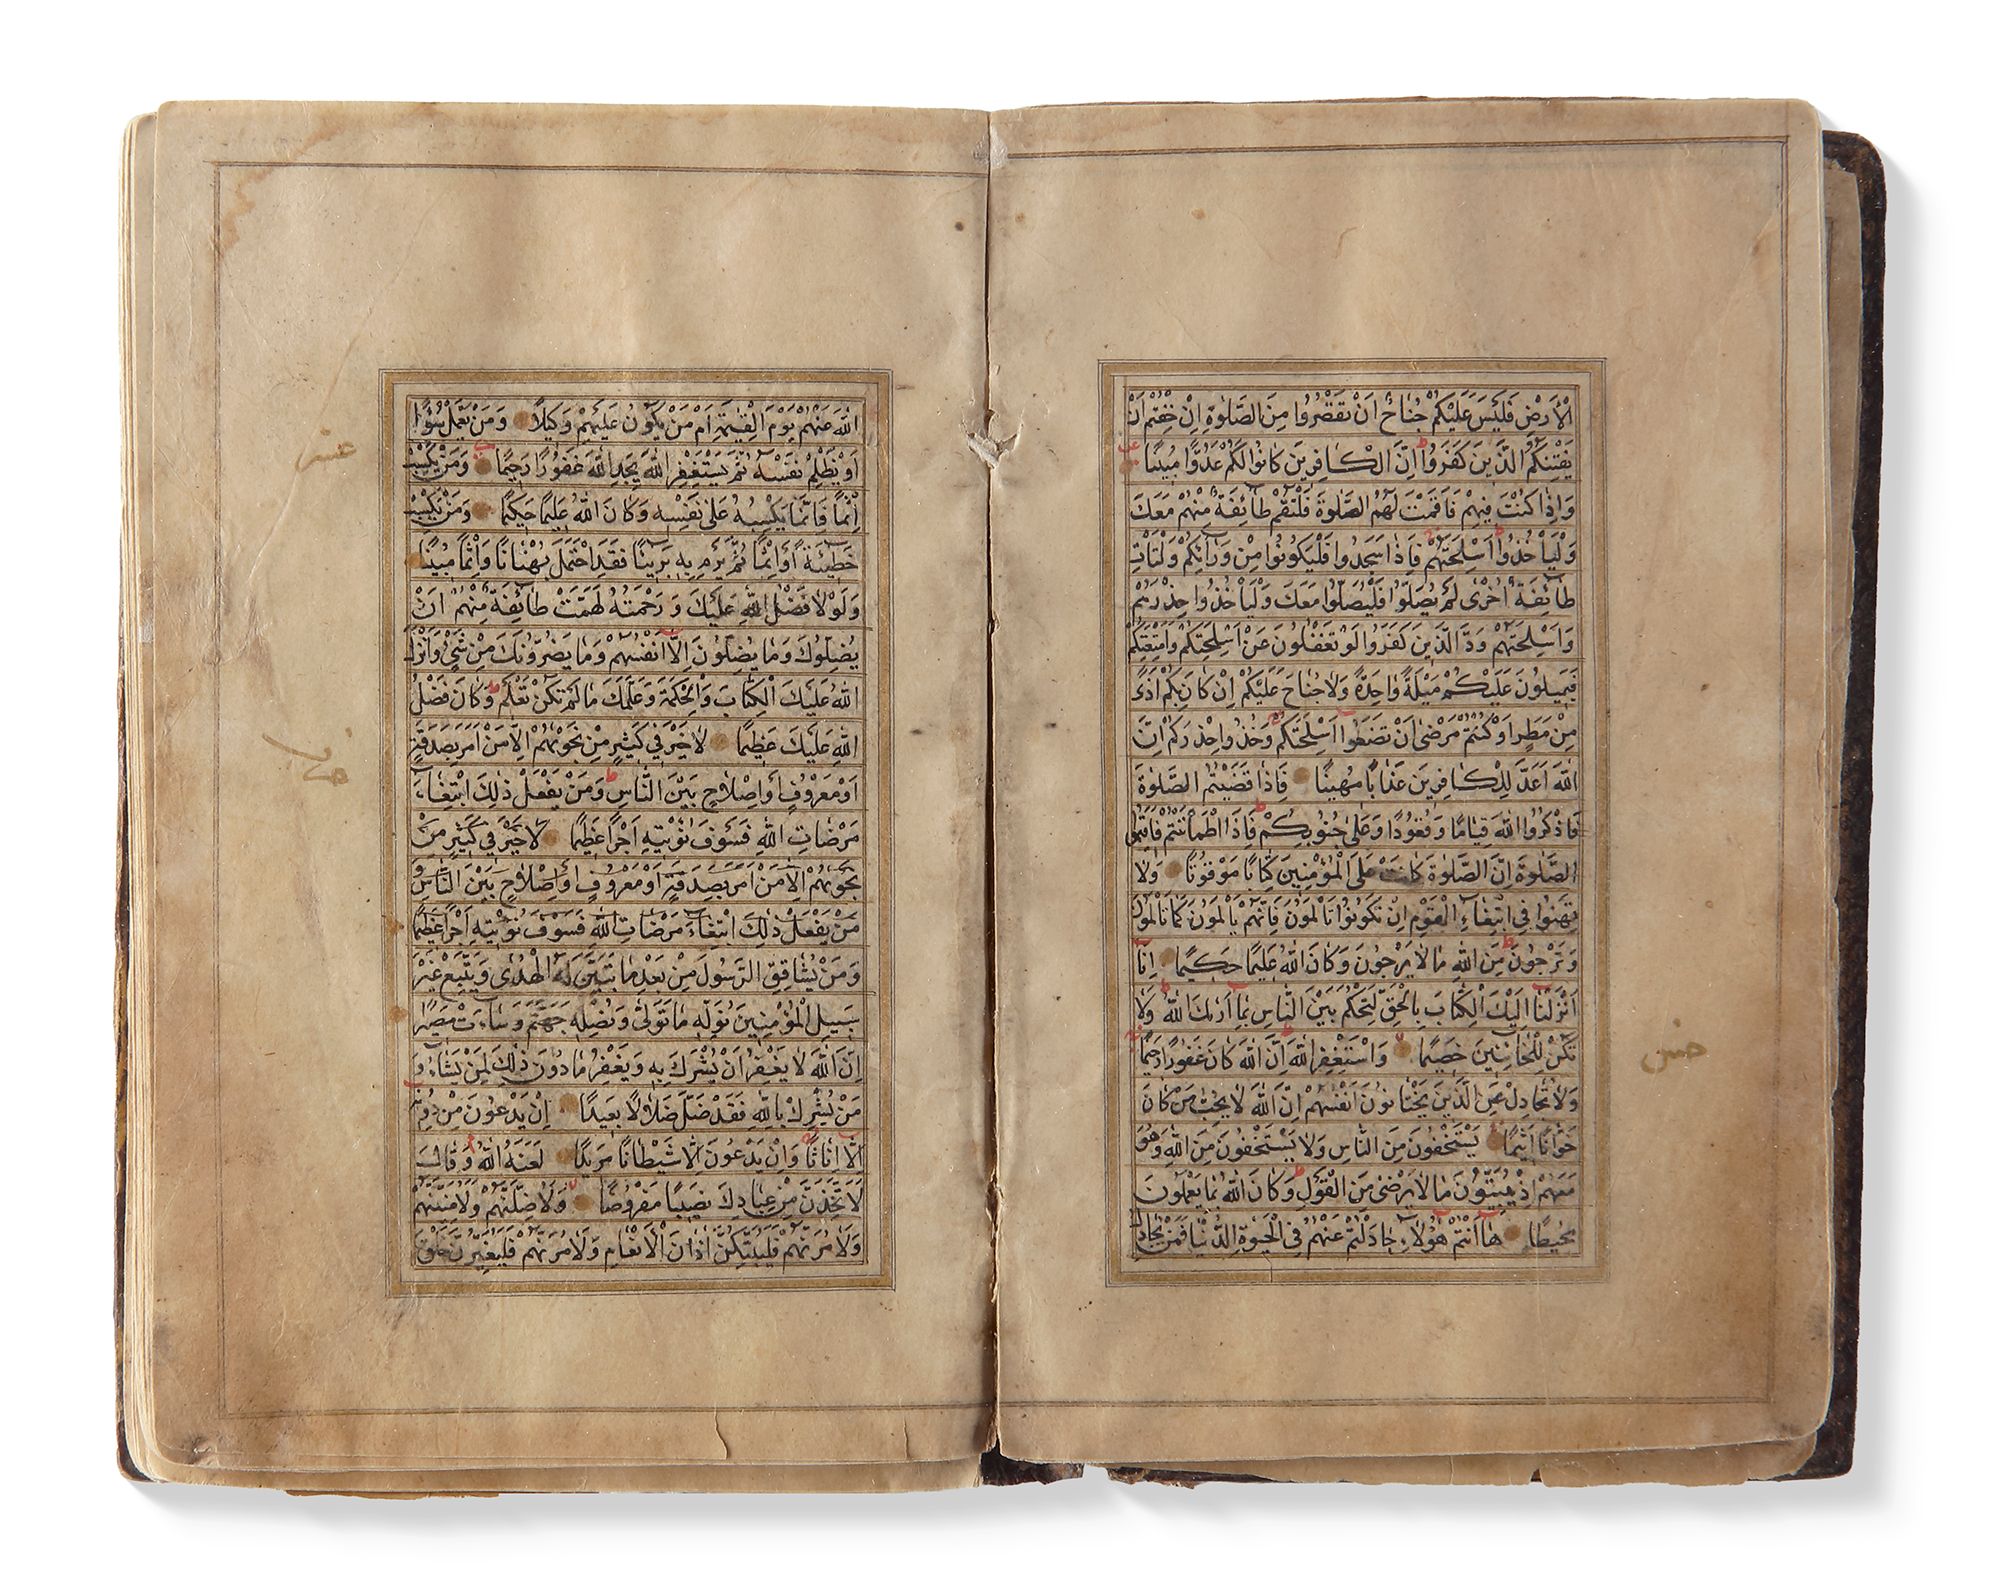 الْأَرْضِ فَلَيْسَ عَلَيْكُمْ جُنَاحٌ اَنْ تَقْصُرُوا مِنَ الصَّلٰوةِ اِنْ خِفْتُمْ اَنْ
يَفْتِنَكُمُ الَّذِينَ كَفَرُوا اِنَّ الْكَافِرِينَ كَانُوا لَكُمْ عَدُوًّا مُبِينًا
وَاِذَا كُنْتَ فِيهِمْ فَاَقَمْتَ لَهُمُ الصَّلٰوةَ فَلْتَقُمْ طَآئِفَةٌ مِنْهُمْ مَعَكَ
وَلْيَأْخُذُوا اَسْلِحَتَهُمْ فَاِذَا سَجَدُوا فَلْيَكُونُوا مِنْ وَرَآئِكُمْ وَلْتَأْتِ
طَآئِفَةٌ اُخْرٰى لَمْ يُصَلُّوا فَلْيُصَلُّوا مَعَكَ وَلْيَأْخُذُوا حِذْرَهُمْ
وَاَسْلِحَتَهُمْ وَدَّ الَّذِينَ كَفَرُوا لَوْ تَغْفُلُونَ عَنْ اَسْلِحَتِكُمْ وَاَمْتِعَتِكُمْ
فَيَمِيلُونَ عَلَيْكُمْ مَيْلَةً وَاحِدَةً وَلَا جُنَاحَ عَلَيْكُمْ اِنْ كَانَ بِكُمْ اَذًى
مِنْ مَطَرٍ اَوْ كُنْتُمْ مَرْضٰى اَنْ تَضَعُوا اَسْلِحَتَكُمْ وَخُذُوا حِذْرَكُمْ اِنَّ
اللّٰهَ اَعَدَّ لِلْكَافِرِينَ عَذَابًا مُهِينًا فَاِذَا قَضَيْتُمُ الصَّلٰوةَ
فَاذْكُرُوا اللّٰهَ قِيَامًا وَقُعُودًا وَعَلٰى جُنُوبِكُمْ فَاِذَا اطْمَأْنَنْتُمْ فَاَقِيمُوا
الصَّلٰوةَ اِنَّ الصَّلٰوةَ كَانَتْ عَلَى الْمُؤْمِنِينَ كِتَابًا مَوْقُوتًا وَلَا
تَهِنُوا فِي ابْتِغَآءِ الْقَوْمِ اِنْ تَكُونُوا تَأْلَمُونَ فَاِنَّهُمْ يَأْلَمُونَ كَمَا تَأْلَمُونَ
وَتَرْجُونَ مِنَ اللّٰهِ مَا لَا يَرْجُونَ وَكَانَ اللّٰهُ عَلِيمًا حَكِيمًا اِنَّا
اَنْزَلْنَا اِلَيْكَ الْكِتَابَ بِالْحَقِّ لِتَحْكُمَ بَيْنَ النَّاسِ بِمَا اَرٰكَ اللّٰهُ وَلَا
تَكُنْ لِلْخَائِنِينَ خَصِيمًا وَاسْتَغْفِرِ اللّٰهَ اِنَّ اللّٰهَ كَانَ غَفُورًا رَحِيمًا
وَلَا تُجَادِلْ عَنِ الَّذِينَ يَخْتَانُونَ اَنْفُسَهُمْ اِنَّ اللّٰهَ لَا يُحِبُّ مَنْ كَانَ
خَوَّانًا اَثِيمًا يَسْتَخْفُونَ مِنَ النَّاسِ وَلَا يَسْتَخْفُونَ مِنَ اللّٰهِ وَهُوَ
مَعَهُمْ اِذْ يُبَيِّتُونَ مَا لَا يَرْضٰى مِنَ الْقَوْلِ وَكَانَ اللّٰهُ بِمَا يَعْمَلُونَ
مُحِيطًا هَا اَنْتُمْ هٰؤُلَاءِ جَادَلْتُمْ عَنْهُمْ فِي الْحَيٰوةِ الدُّنْيَا فَمَنْ يُجَادِلُ
اللّٰهَ عَنْهُمْ يَوْمَ الْقِيٰمَةِ اَمْ مَنْ يَكُونُ عَلَيْهِمْ وَكِيلًا وَمَنْ يَعْمَلْ سُوٓءًا
اَوْ يَظْلِمْ نَفْسَهُ ثُمَّ يَسْتَغْفِرِ اللّٰهَ يَجِدِ اللّٰهَ غَفُورًا رَحِيمًا وَمَنْ يَكْسِبْ
اِثْمًا فَاِنَّمَا يَكْسِبُهُ عَلٰى نَفْسِهِ وَكَانَ اللّٰهُ عَلِيمًا حَكِيمًا وَمَنْ يَكْسِبْ
خَطِيئَةً اَوْ اِثْمًا ثُمَّ يَرْمِ بِهِ بَرِيئًا فَقَدِ احْتَمَلَ بُهْتَانًا وَاِثْمًا مُبِينًا
وَلَوْلَا فَضْلُ اللّٰهِ عَلَيْكَ وَرَحْمَتُهُ لَهَمَّتْ طَآئِفَةٌ مِنْهُمْ اَنْ
يُضِلُّوكَ وَمَا يُضِلُّونَ اِلَّا اَنْفُسَهُمْ وَمَا يَضُرُّونَكَ مِنْ شَيْءٍ وَاَنْزَلَ
اللّٰهُ عَلَيْكَ الْكِتَابَ وَالْحِكْمَةَ وَعَلَّمَكَ مَا لَمْ تَكُنْ تَعْلَمُ وَكَانَ فَضْلُ
اللّٰهِ عَلَيْكَ عَظِيمًا لَا خَيْرَ فِي كَثِيرٍ مِنْ نَجْوٰيهُمْ اِلَّا مَنْ اَمَرَ بِصَدَقَةٍ
اَوْ مَعْرُوفٍ اَوْ اِصْلَاحٍ بَيْنَ النَّاسِ وَمَنْ يَفْعَلْ ذٰلِكَ ابْتِغَآءَ
مَرْضَاتِ اللّٰهِ فَسَوْفَ نُؤْتِيهِ اَجْرًا عَظِيمًا لَا خَيْرَ فِي كَثِيرٍ مِنْ
نَجْوٰيهُمْ اِلَّا مَنْ اَمَرَ بِصَدَقَةٍ اَوْ مَعْرُوفٍ اَوْ اِصْلَاحٍ بَيْنَ النَّاسِ وَ
مَنْ يَفْعَلْ ذٰلِكَ ابْتِغَآءَ مَرْضَاتِ اللّٰهِ فَسَوْفَ نُؤْتِيهِ اَجْرًا عَظِيمًا
وَمَنْ يُشَاقِقِ الرَّسُولَ مِنْ بَعْدِ مَا تَبَيَّنَ لَهُ الْهُدٰى وَيَتَّبِعْ غَيْرَ
سَبِيلِ الْمُؤْمِنِينَ نُوَلِّهِ مَا تَوَلّٰى وَنُصْلِهِ جَهَنَّمَ وَسَآءَتْ مَصِيرًا
اِنَّ اللّٰهَ لَا يَغْفِرُ اَنْ يُشْرَكَ بِهِ وَيَغْفِرُ مَا دُونَ ذٰلِكَ لِمَنْ يَشَاءُ وَ
مَنْ يُشْرِكْ بِاللّٰهِ فَقَدْ ضَلَّ ضَلَالًا بَعِيدًا اِنْ يَدْعُونَ مِنْ دُونِهِ
اِلَّا اِنَاثًا وَاِنْ يَدْعُونَ اِلَّا شَيْطَانًا مَرِيدًا لَعَنَهُ اللّٰهُ وَقَالَ
لَاَتَّخِذَنَّ مِنْ عِبَادِكَ نَصِيبًا مَفْرُوضًا وَلَاُضِلَّنَّهُمْ وَلَاُمَنِّيَنَّهُمْ
وَلَاٰمُرَنَّهُمْ فَلَيُبَتِّكُنَّ اٰذَانَ الْاَنْعَامِ وَلَاٰمُرَنَّهُمْ فَلَيُغَيِّرُنَّ خَلْقَ